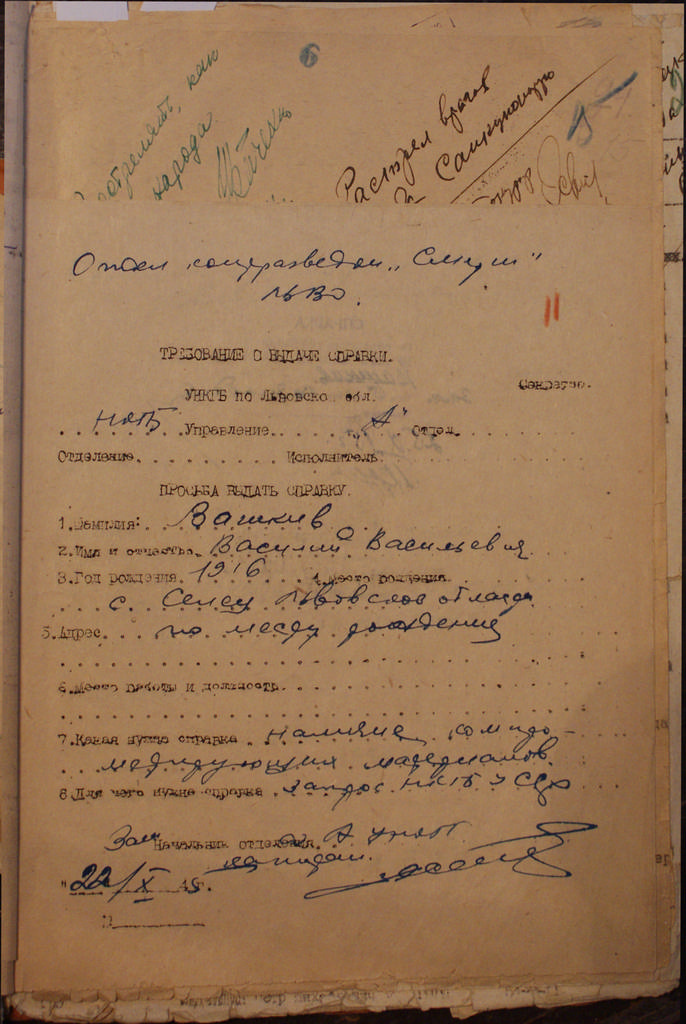 6
как
народа
Расстрел врагов
Санкционирую
Отдел контрразведки „Смерш"
ЛьВО.
11
ТРЕБОВАНИЕ О ВЫДАЧЕ СПРАВКИ.
Секретно.
УНКГБ по Львовской обл.
НКГБ Управление "А" Отдел
Отделение Исполнитель
ПРОСЬБА ВЫДАТЬ СПРАВКУ.
1.Фамилия: Вашкив
2.Имя и отчество. Василий Васильевич
3.Год рождения. 1916 4.Место рождения
с. Львовской области
5.Адрес. по месту рождения
6.Место работы и должность.
7.Какая нужна справка наличие компро-
метирующих материалов.
8.Для чего нужна справка запрос НКГБ УССР
Зам Начальник отделения. А УНКГБ
капитан.
"22/X 45г.